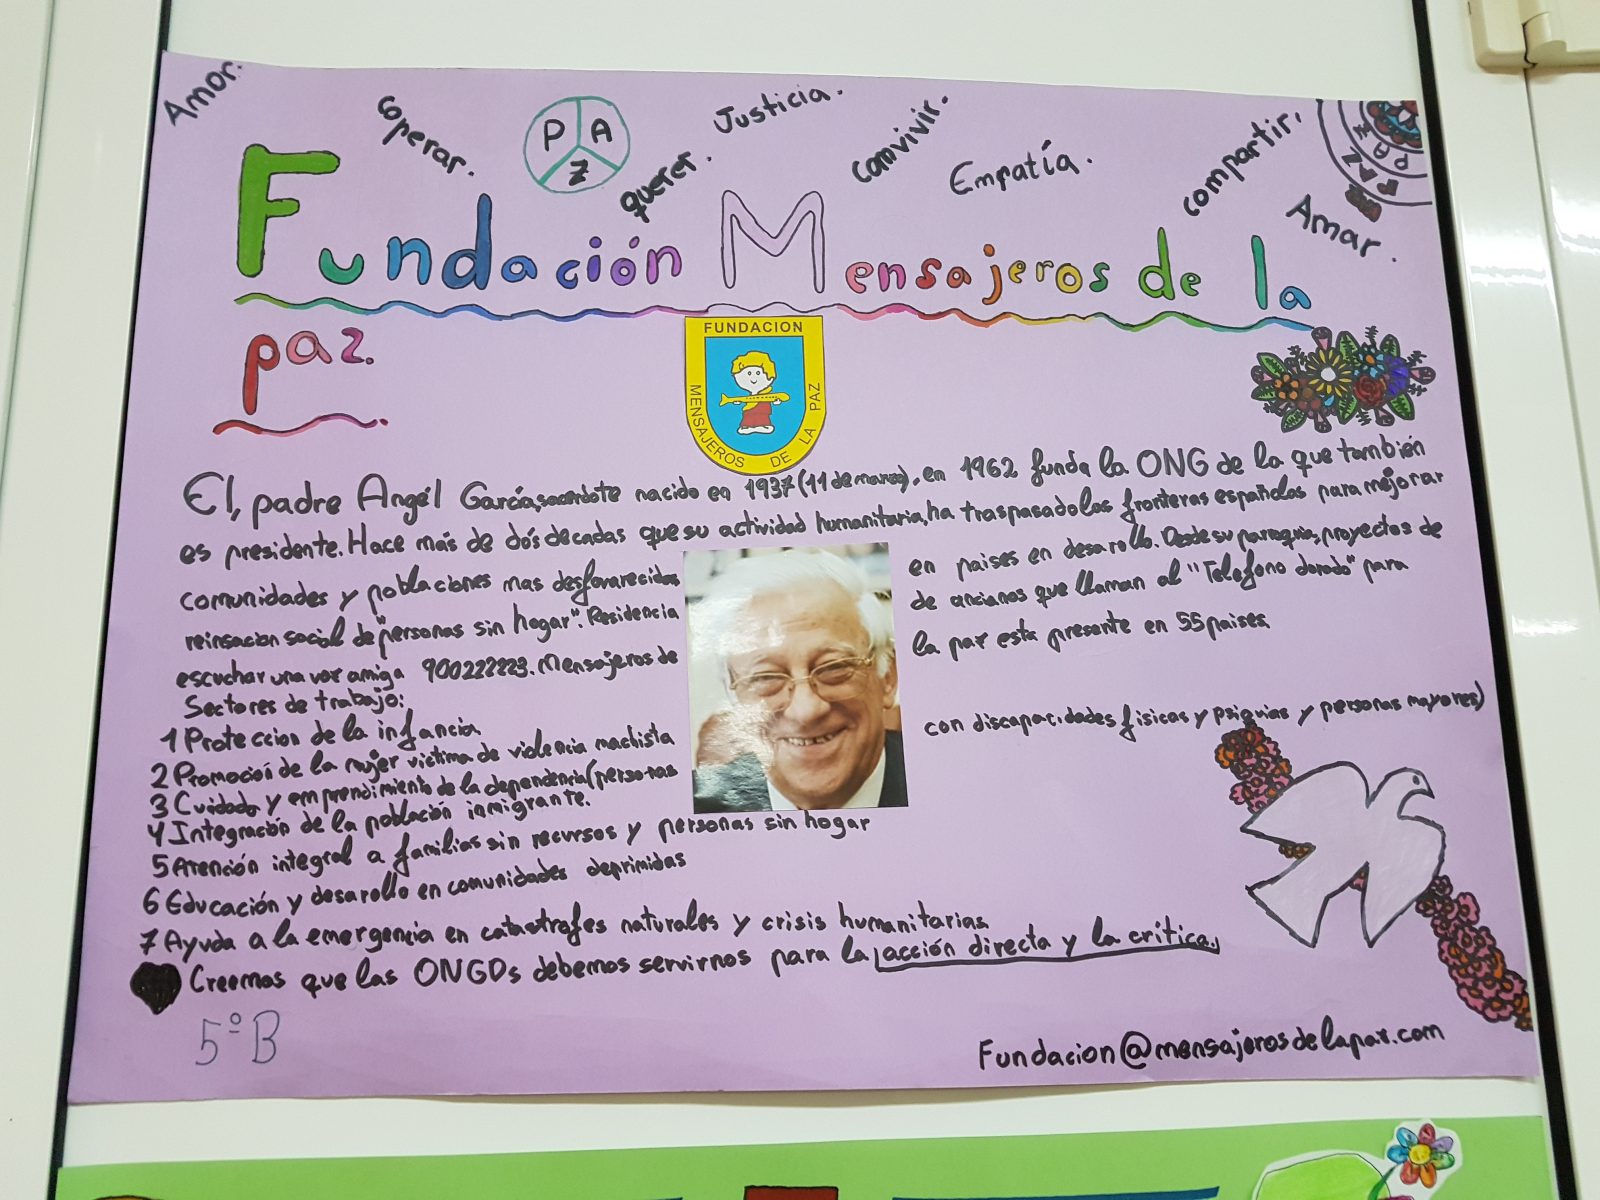 Amor.
Coperar.
P A Z
querer.
Justicia.
Convivir.
Empatía.
compartir.
Amar.
PAZ
PAZ
Fundación Mensajeros de la
paz.
FUNDACION
MENSAJEROS DE LA PAZ
El, padre Angél García, sacerdote nacido en 1937 (11 de marzo), en 1962 funda la ONG de la que también
es presidente. Hace más de dós decadas que su actividad humanitaria, ha traspasado las fronteras españolas para mejorar
comunidades y poblaciones mas desfavarecidas en paises en desarollo. Desde su parroquia, proyectos de
reinsacion social de "personas sin hogar". Residencia de ancianos que llaman al "Telefono dorado" para
escuchar una voz amiga 900222223. Mensajeros de la paz esta presente en 55 paises.
Sectores de trabajo:
1 Proteccion de la infancia
2 Promocioń de la mujer victima de violencia machista
3 Cuidado y emprendimiento de la dependencia (personas con discapacidades fisicas y psiquias y personas mayores)
4 Integración de la población inmigrante.
5 Atención integral a familias sin recursos y personas sin hogar
6 Educación y desarollo en comunidades deprimidas
7 Ayuda a la emergencia en catastrofes naturales y crisis humanitarias
Creemos que las ONGDs debemos servirnos para la acción directa y la critica.
5º B
Fundacion@mensajerosdelapaz.com